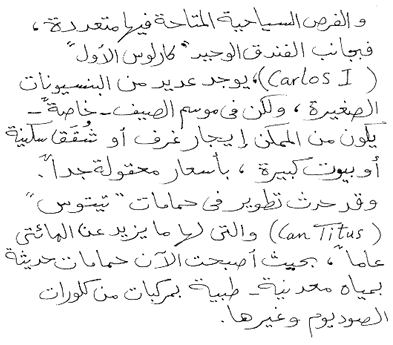 والفرص السياحية المتاحة فيها متعددة،
فبجانب الفندق الوحيد "كارلوس الأول"
(Carlos I)، يوجد عديد من البنسيونات
الصغيرة، ولكن فى موسم الصيف - خاصةً -
يكون من الممكن إيجار غرف أو شُقَق سكنية
أو بيوت كبيرة، بأسعار معقولة جداً.
وقد حدث تطوير فى حمامات "تيتوس"
(Can Titus) والتى لها ما يزيد عن المائتى
عاماً، بحيث أصبحت الآن حمامات حديثة
بمياه معدنية - طبية بمركبات من كلورات
الصوديوم وغيرها.